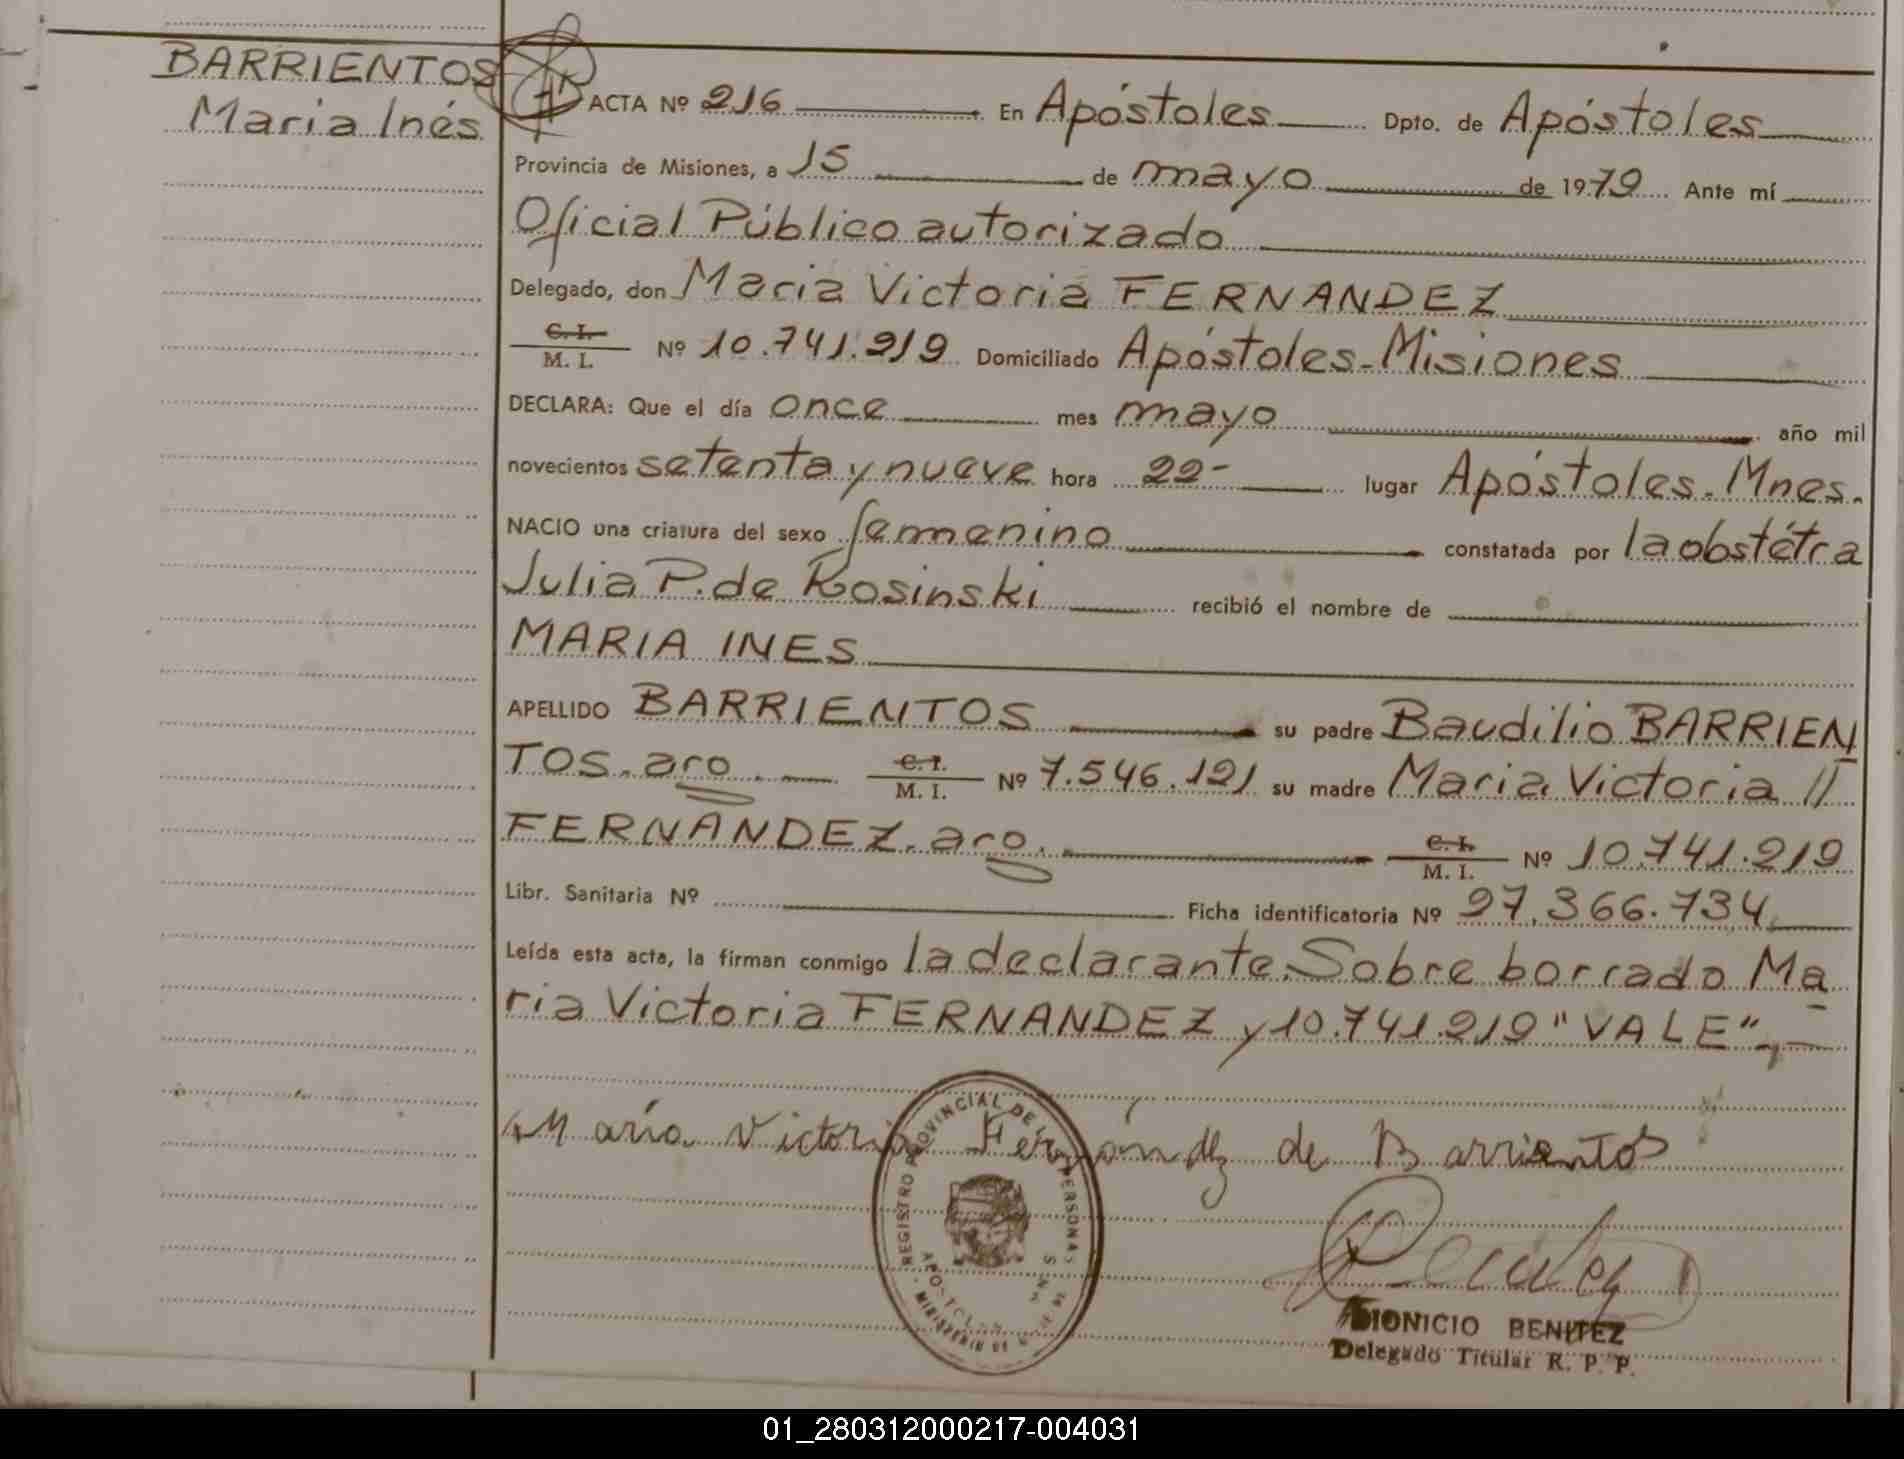 BARRIENTOS
Maria Inés
ACTA Nº 216 En Apóstoles Dpto. de Apóstoles
Provincia de Misiones, a 15 de mayo de 1979 Ante mí
Oficial Público autorizado
Delegado, don Maria Victoria FERNANDEZ
C. I.
M. I. Nº 10.741.219 Domiciliado Apóstoles-Misiones
DECLARA: Que el día once mes mayo año mil
novecientos setenta y nueve hora 22- lugar Apóstoles. Mnes.
NACIO una criatura del sexo femenino constatada por la obstétra
Julia P. de Rosinski recibió el nombre de
MARIA INES
APELLIDO BARRIENTOS su padre Baudilio BARRIEN
TOS. aro. C. I. M. I. Nº 7.546.121 su madre Maria Victoria //
FERNANDEZ. aro. C. I. M. I. Nº 10.741.219
Libr. Sanitaria Nº Ficha identificatoria Nº 27.366.734
Leída esta acta, la firman conmigo la declarante. Sobre borrado Ma
ria Victoria FERNANDEZ y 10.741.219 "VALE".-
María Victoria Fernández de Barrientos
REGISTRO PROVINCIAL DE LAS PERSONAS
APOSTOLES
MINISTERIO DE
DIONICIO BENITEZ
Delegado Titular R. P. P.
01_280312000217-004031